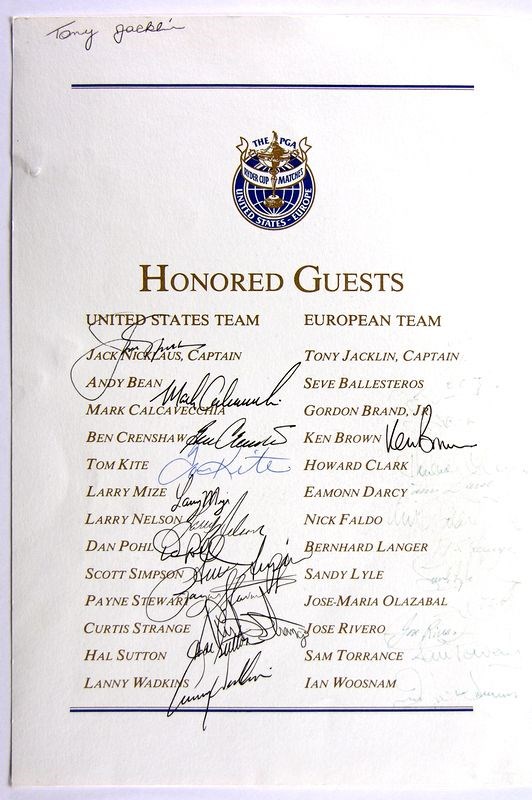 Tony Jacklin
THE PGA
RYDER CUP MATCHES
UNITED STATES - EUROPE
HONORED GUESTS
UNITED STATES TEAM
JACK NICKLAUS, CAPTAIN
ANDY BEAN
Mark Calcavecchia
MARK CALCAVECCHIA
BEN CRENSHAW Ben Crenshaw
TOM KITE Tom Kite
LARRY MIZE Larry Mize
LARRY NELSON Larry Nelson
DAN POHL Dan Pohl
SCOTT SIMPSON Scott Simpson
PAYNE STEWART Payne Stewart
CURTIS STRANGE Curtis Strange
HAL SUTTON Hal Sutton
LANNY WADKINS Lanny Wadkins
EUROPEAN TEAM
TONY JACKLIN, CAPTAIN
SEVE BALLESTEROS
GORDON BRAND, JR.
KEN BROWN Ken Brown
HOWARD CLARK
EAMONN DARCY
NICK FALDO
BERNHARD LANGER
SANDY LYLE
JOSE-MARIA OLAZABAL
JOSE RIVERO Jose Rivero
SAM TORRANCE Sam Torrance
IAN WOOSNAM